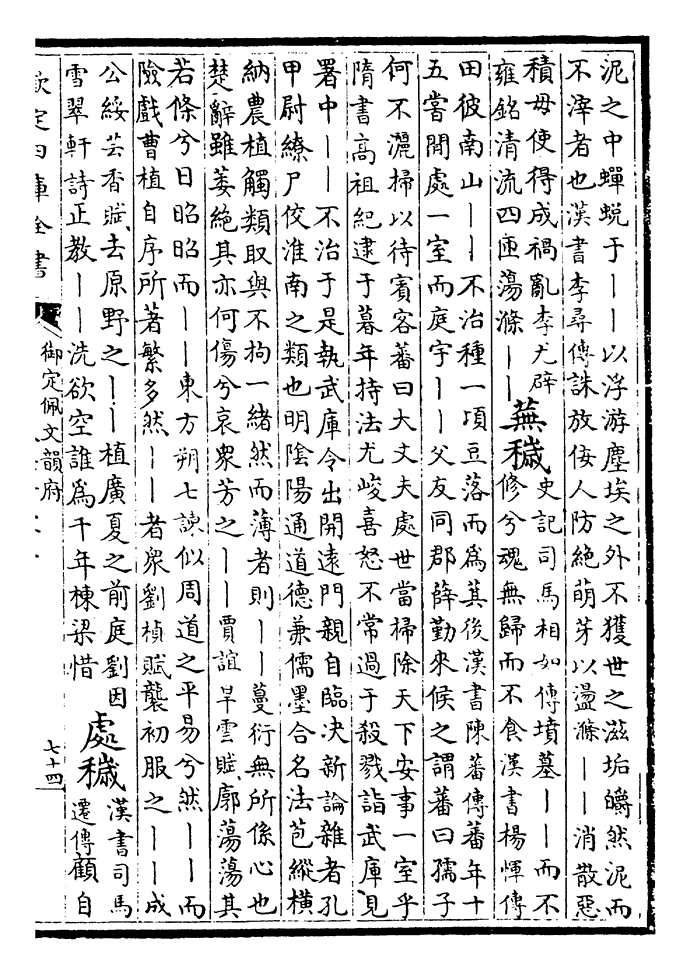 泥之中蟬蛻于丨丨以浮游塵埃之外不獲世之滋垢皭然泥而
不滓者也漢書李尋傳誅放佞人防絶萌芽以盪滌丨丨消散惡
積毋使得成禍亂李尤辟
雍銘清流四匝蕩滌丨丨
蕪穢
史記司馬相如傳墳墓丨丨而不
修兮魂無歸而不食漢書楊惲傳
田彼南山丨丨不治種一頃豆落而為萁後漢書陳蕃傳蕃年十
五嘗閒處一室而庭宇丨丨父友同郡薛勤來候之謂蕃曰孺子
何不灑掃以待賓客蕃曰大丈夫處世當掃除天下安事一室乎
隋書高祖紀逮于暮年持法尤峻喜怒不常過于殺戮詣武庫見
署中丨丨不治于是執武庫令出開遠門親自臨决新論雜者孔
甲尉繚尸佼淮南之類也明陰陽通道德兼儒墨合名法苞縱横
納農植觸類取與不拘一緒然而薄者則丨丨蔓衍無所係心也
楚辭雖萎絶其亦何傷兮哀衆芳之丨丨賈誼旱雲賦廓蕩蕩其
若滌兮日昭昭而丨丨東方朔七諫似周道之平易兮然丨丨而
險戲曹植自序所著繁多然丨丨者衆劉楨賦襲初服之丨丨成
公綏芸香賦去原野之丨丨植廣夏之前庭劉因
雪翠軒詩正教丨丨洗欲空誰為千年棟梁惜
處穢
漢書司馬
遷傳顧自
欽定四庫全書
御定佩文韻府
七十四